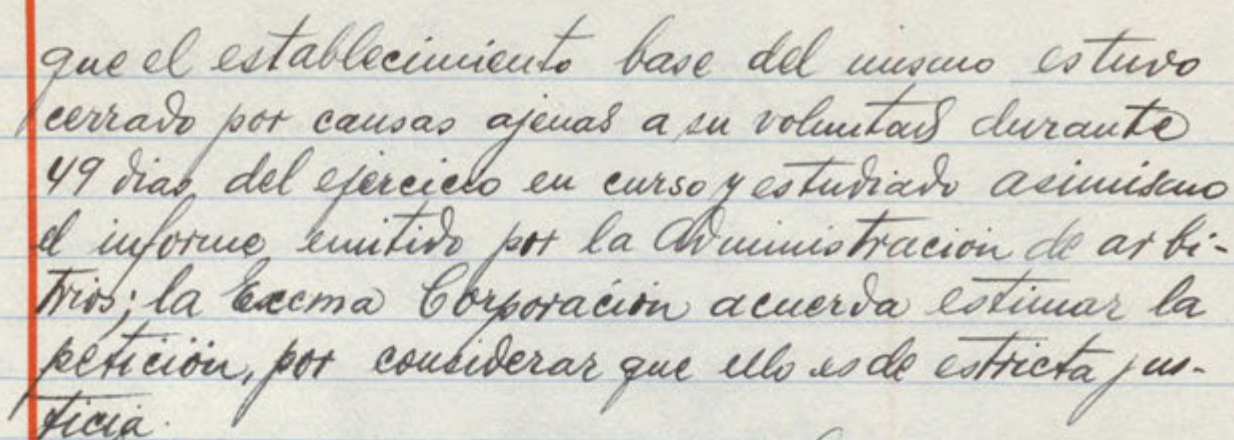 que el establecimiento base del mismo estuvo
cerrado por causas ajenas a su voluntad durante
49 dias, del ejercicio en curso y estudiado asimismo
el informe emitido por la Administración de arbi-
trios; la Excma Corporación acuerda estimar la
petición, por considerar que ello es de estricta jus-
ticia.